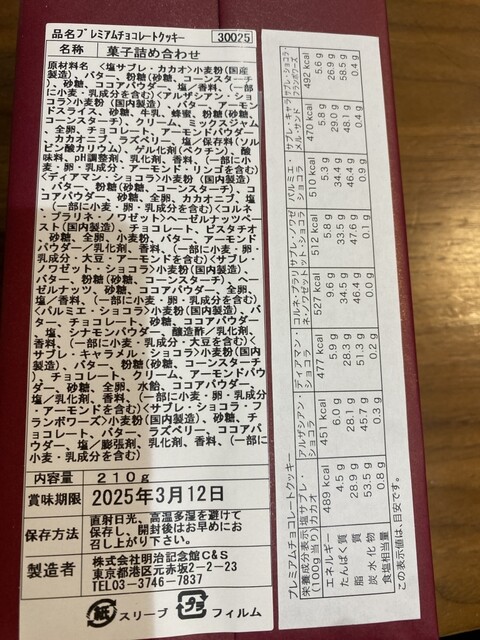 品名プレミアムチョコレートクッキー 30025
名称 菓子詰め合わせ
原材料名 <塩サブレ・カカオ>小麦粉(国産
製造)、バター、粉糖(砂糖、コーンスターチ
)、砂糖、ココアパウダー、塩／香料、(一部
に小麦・乳成分を含む)<アルザシアン・ショ
コラ>小麦粉(国内製造)、バター、アーモン
ドスライス、砂糖、牛乳、蜂蜜、粉糖(砂糖、
コーンスターチ)、クリーム、ミックスジャム
、全卵、チョコレート、アーモンドパウダー、
、カカオニブ、ラズベリー、塩／保存料(ソル
ビン酸カリウム)、ゲル化剤(ペクチン)、酸
味料、pH調整剤、乳化剤、香料、(一部に小
麦・卵・乳成分・アーモンド・リンゴを含む)
<ディアマン・ショコラ>小麦粉(国内製造)、
、バター、粉糖(砂糖、コーンスターチ)、コ
コアパウダー、砂糖、全卵、カカオニブ、塩
、(一部に小麦・卵・乳成分を含む)<コルネ
・プラリネ・ノワゼット>ヘーゼルナッツペー
スト(国内製造)、チョコレート、ピスタチオ
、砂糖、全卵、小麦粉、バター、アーモンド
パウダー／乳化剤、香料、(一部に小麦・卵・
乳成分・大豆・アーモンドを含む)<サブレ・
ノワゼット・ショコラ>小麦粉(国内製造)、
、バター、粉糖(砂糖、コーンスターチ)、ヘ
ーゼルナッツ、砂糖、ココアパウダー、全卵、
塩／香料、(一部に小麦・卵・乳成分を含む)
<パルミエ・ショコラ>小麦粉(国内製造)、バ
ター、チョコレート、砂糖、ココアパウダー
、塩、シナモンパウダー、醸造酢／乳化剤、
香料、(一部に小麦・乳成分・大豆を含む)<
サブレ・キャラメル・ショコラ>小麦粉(国内
製造)、バター、粉糖(砂糖、コーンスターチ
)、チョコレート、クリーム、アーモンドパウ
ダー、砂糖、全卵、水飴、ココアパウダー、
塩／乳化剤、香料、(一部に小麦・卵・乳成分
・アーモンドを含む)<サブレ・ショコラ・フ
ランボワーズ>小麦粉(国内製造)、砂糖、チ
ョコレート、バター、ラズベリー、ココアパ
ウダー、塩／膨張剤、乳化剤、香料、(一部に
小麦・乳成分を含む)
内容量 210g
賞味期限 2025年3月12日
保存方法 直射日光、高温多湿を避けて
保存し、開封後はお早めにお
召し上がり下さい。
製造者 株式会社明治記念館C&S
東京都港区元赤坂2－2－23
TEL03－3746－7837
紙 スリーブ プラ フィルム
プレミアムチョコレートクッキー
栄養成分表示 塩サブレ・ アルザシアン・ ディアマン・ コルネ・プラリ サブレ・ノワゼ パルミエ・ サブレ・キャラ サブレ・ショコラ・
(100g当り) カカオ ショコラ ショコラ ネ・ノワゼット ット・ショコラ ショコラ メル・サンド フランボワーズ
エネルギー 489 kcal 451 kcal 477 kcal 527 kcal 512 kcal 510 kcal 470 kcal 492 kcal
たんぱく質 4.5 g 6.0 g 5.9 g 9.6 g 5.8 g 5.3 g 5.8 g 5.6 g
脂 質 28.9 g 28.1 g 28.3 g 34.5 g 33.5 g 34.4 g 28.0 g 26.9 g
炭水化物 53.5 g 45.7 g 51.3 g 46.4 g 47.6 g 46.4 g 48.1 g 58.5 g
食塩相当量 0.8 g 0.3 g 0.2 g 0.0 g 0.1 g 0.9 g 0.4 g 0.4 g
この表示値は、目安です。